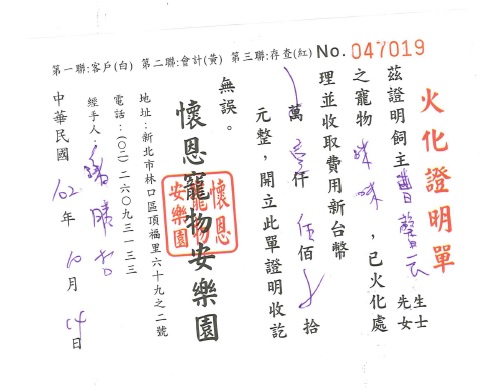 第一聯:客戶(白) 第二聯:會計(黃) 第三聯:存查(紅) No. 047019
火化證明單
茲證明飼主 先生女士
之寵物咪咪，已火化處
理並收取費用新台幣
萬壹仟伍佰拾
元整，開立此單證明收訖
無誤。
懷恩寵物安樂園
懷恩寵物安樂園
地址：新北市林口區頂福里六十九之二號
電話：(○二)二六○九三一三三
經手人：
中華民國 102年10月14日